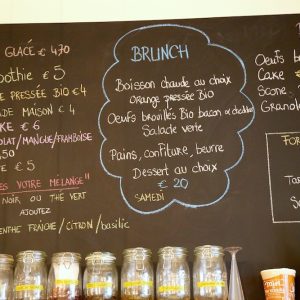 GLACÉ € 4,70
oothie € 5
E PRESSÉE BIO € 4
ADE MAISON € 4
KE € 6
OLAT/MANGUE/FRAMBOISE
,50
TE € 5
ES VOTRE MÉLANGE"
NOIR OU THÉ VERT
AJOUTEZ
ENTHE FRAÎCHE/CITRON/basilic
BRUNCH
Boisson chaude au choix
Orange pressée Bio
Oeufs brouillés Bio bacon ou cheddar
Salade verte
Pains, confiture, beurre
Dessert au choix
€ 20
SAMEDI
Oeufs b
Cake
Scone
Granol
FOR
Tar
S
miel